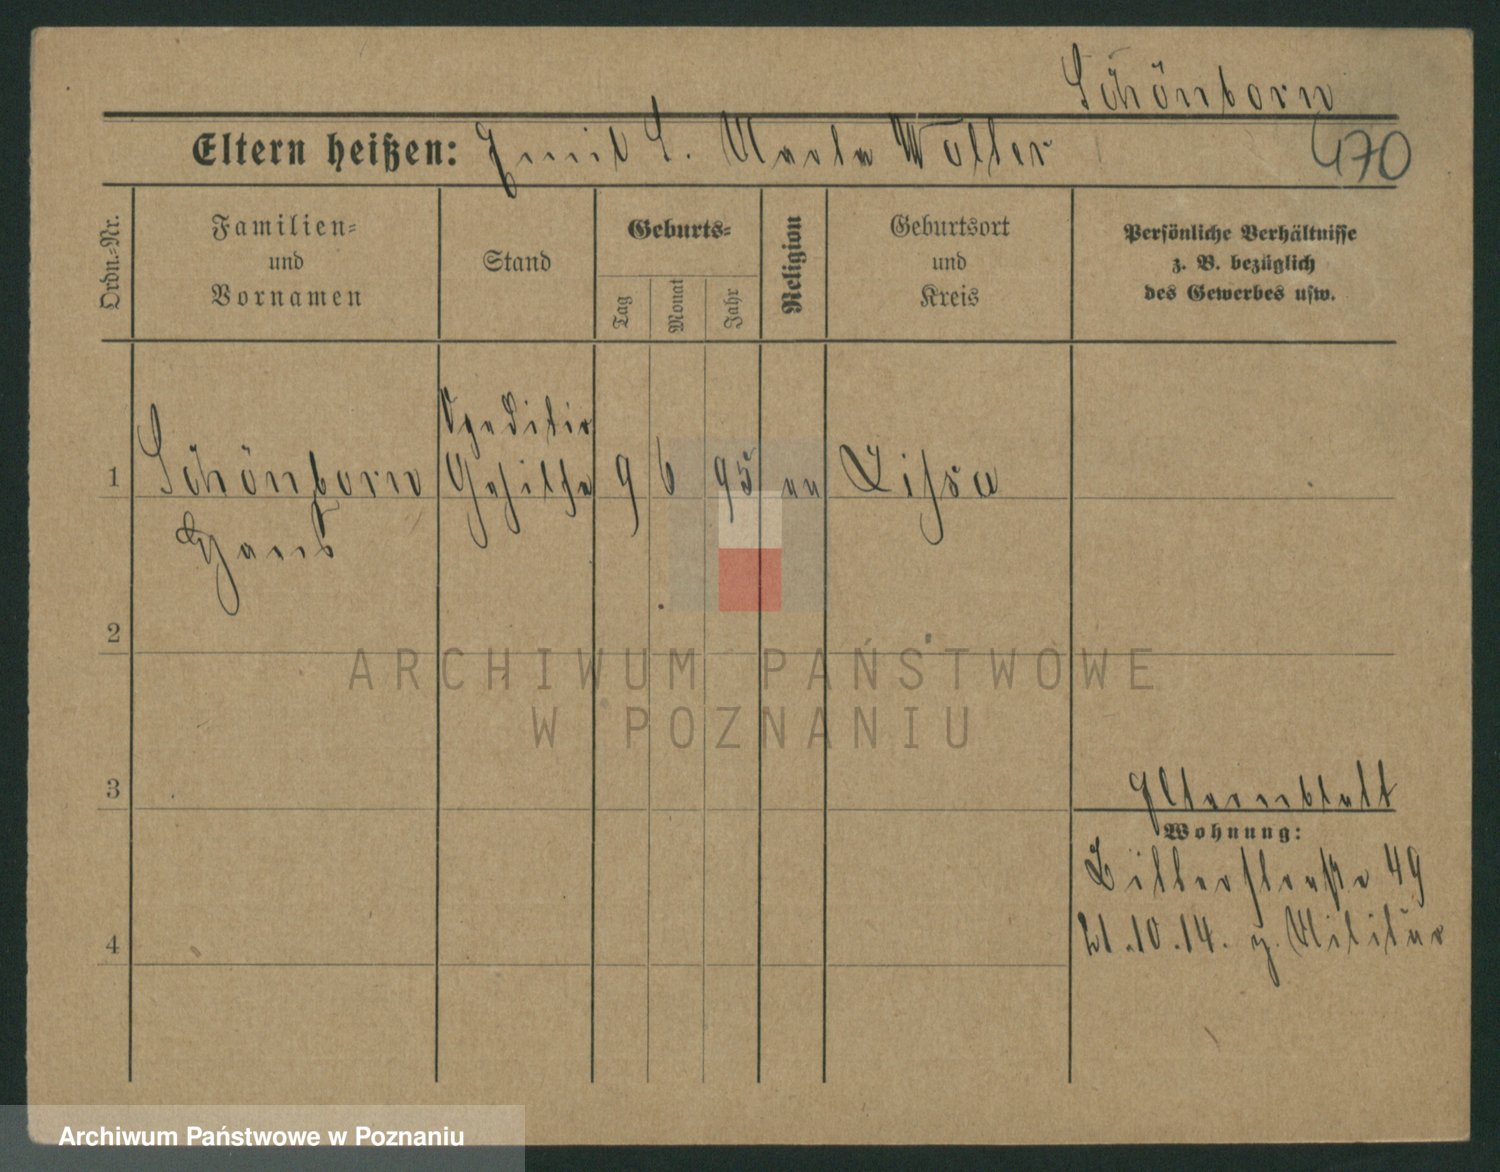 Schönborn
Eltern heißen: Emil S. Marta Woller
470
Ordn.-Nr.
Familien-
und
Vornamen
Stand
Geburts-
Tag
Monat
Jahr
Religion
Geburtsort
und
Kreis
Persönliche Verhältnisse
z. B. bezüglich
des Gewerbes usw.
1
Schönborn
Hans
Speditir
Gehilfe
9
6
95
ev
Lissa
2
ARCHIWUM PAŃSTWOWE
W POZNANIU
3
Elternblatt
Wohnung:
49
21.10.14. z. Militär
4
Archiwum Państwowe w Poznaniu